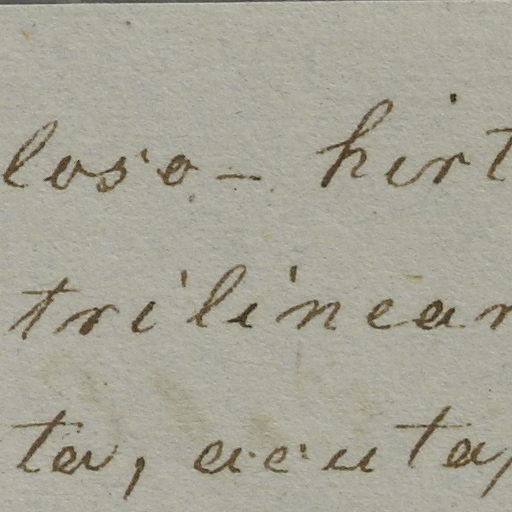 loso- hirt
trilinear
ta, acuta,